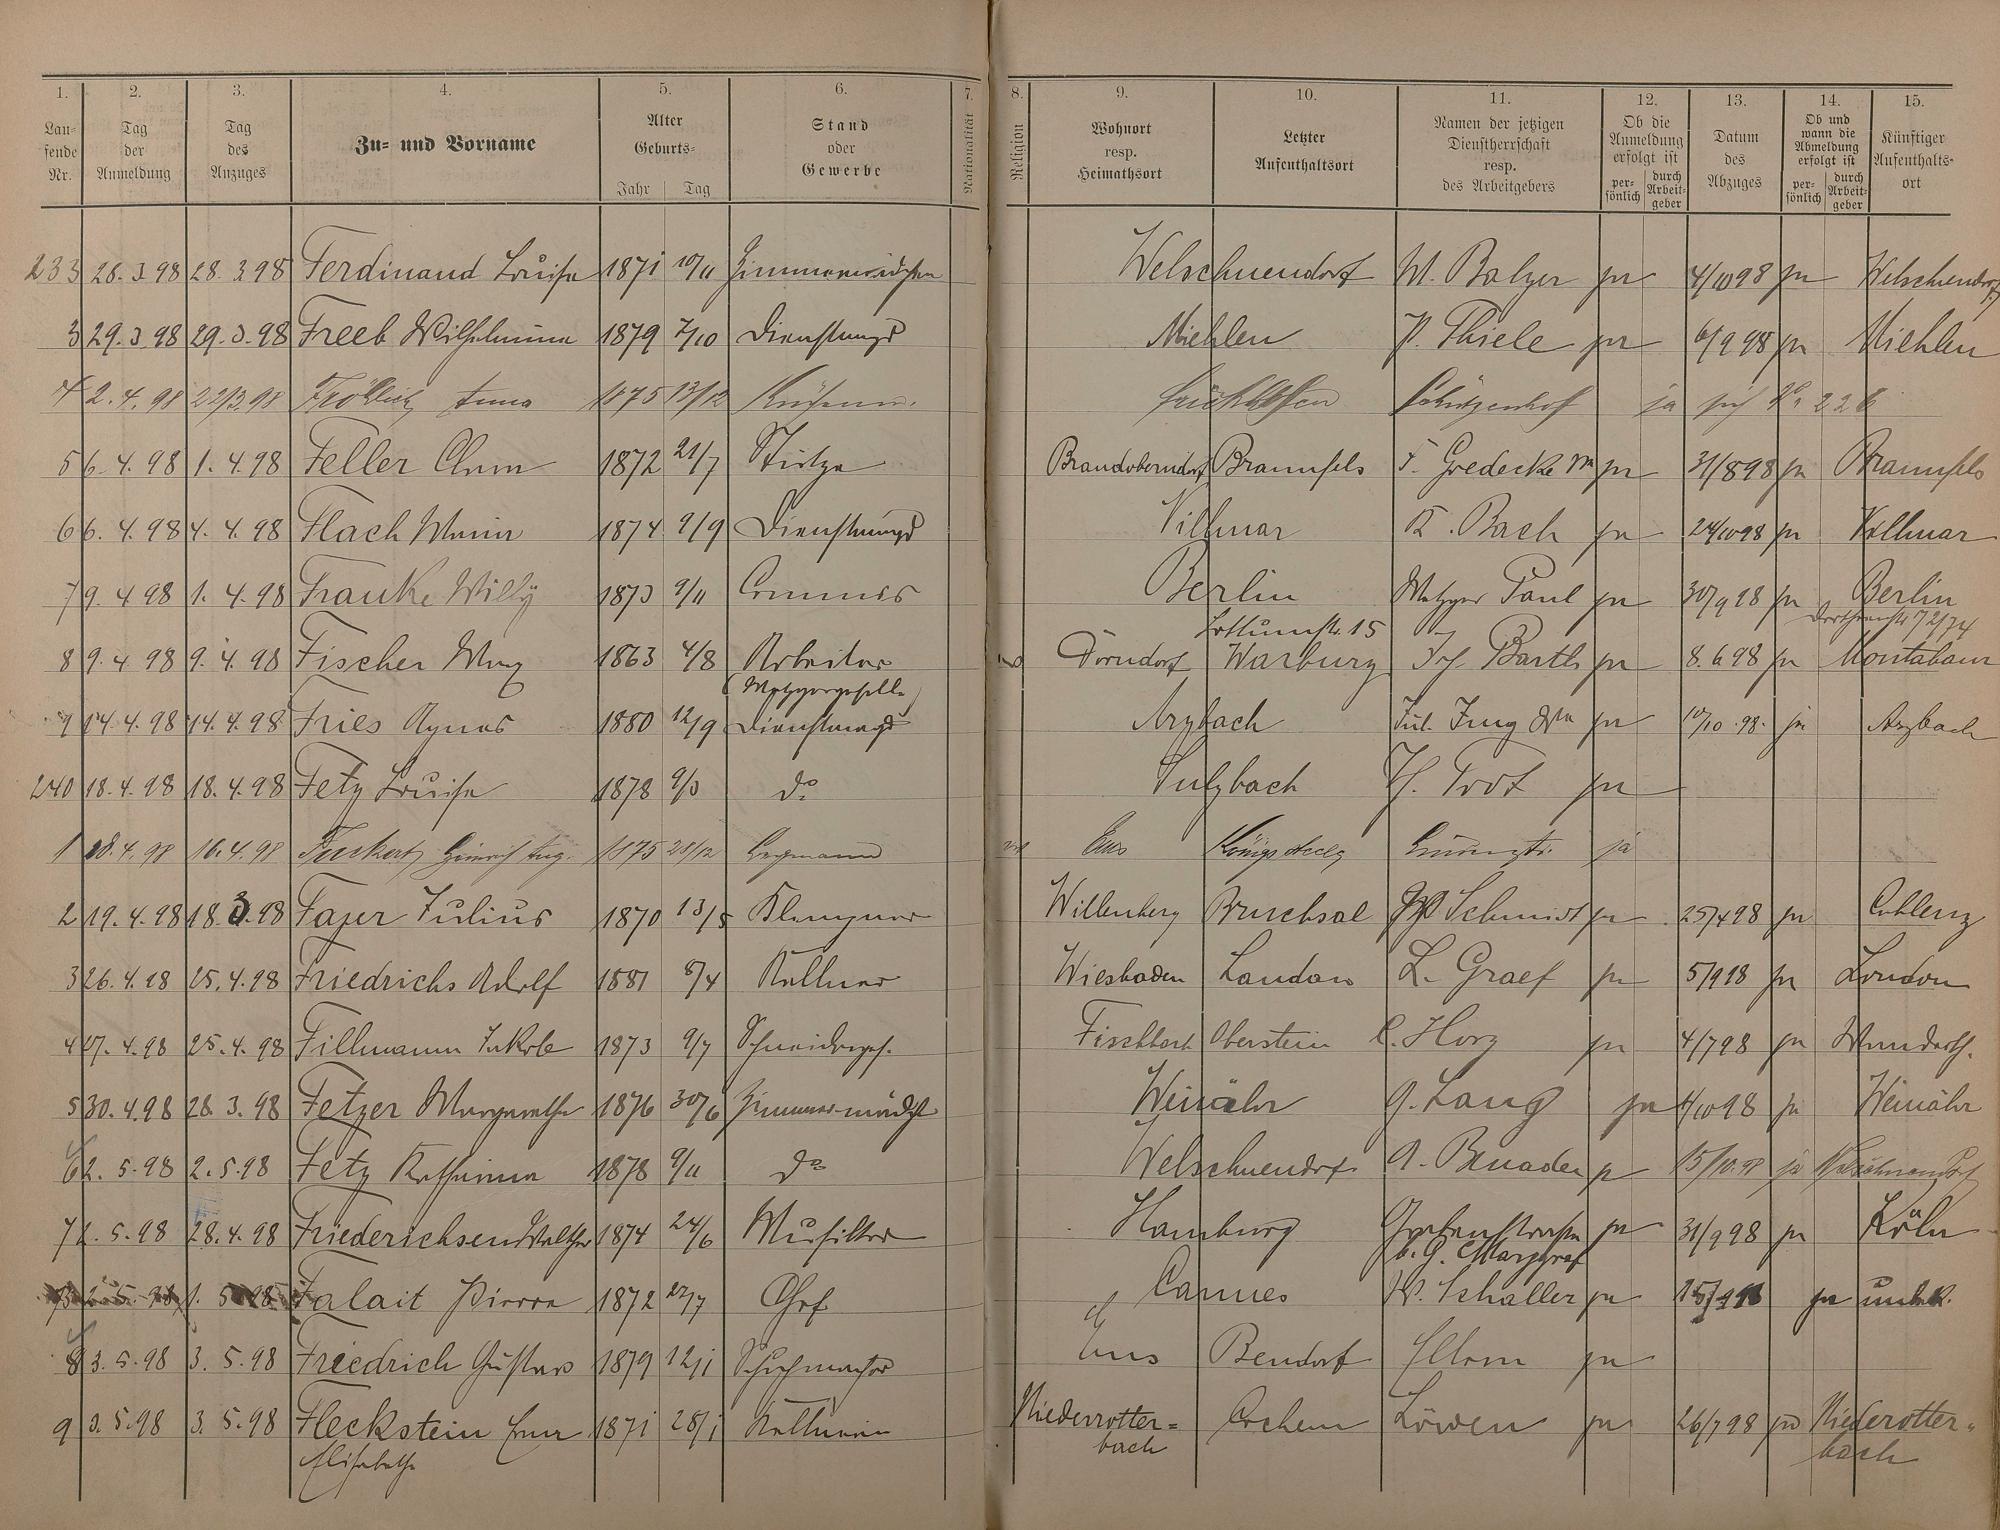 1. 2. 3. 4. 5. 6. 7. 8. 9. 10. 11. 12. 13. 14. 15.
Lau-
fende
Nr.
Tag
der
Anmeldung
Tag
des
Anzuges
Zu- und Vorname
Alter
Geburts-
Jahr Tag
Stand
oder
Gewerbe
Nationalität
Religion
Wohnort
resp.
Heimathsort
Letzter
Aufenthaltsort
Namen der jetzigen
Dienstherrschaft
resp.
des Arbeitgebers
Ob die
Anmeldung
erfolgt ist
per-
sönlich
durch
Arbeit-
geber
Datum
des
Abzuges
Ob und
wann die
Abmeldung
erfolgt ist
per-
sönlich
durch
Arbeit-
geber
Künftiger
Aufenthalts-
ort
233 28.3.98 28.3.98 Ferdinand Louise 1871 10/11 Zimmermädchen Welschneudorf W. Balzer ja 4/10 98 ja Welschneudorf
3 29.3.98 29.3.98 Freeb Wilhelmine 1879 7/10 Dienstmagd Miehlen P. Thiele ja 6/9 98 ja Miehlen
4 2.4.98 22/3.98 Fröhlich Anna 1875 13/12 Schützenhof ja No 226
5 6.4.98 1.4.98 Feller Anna 1872 21/7 Stütze Brandoberndorf Braunfels F. Gredecke Wn ja 31/8 98 ja Braunfels
6 6.4.98 4.4.98 Flach Maria 1874 9/9 Dienstmagd Villmar K. Bach ja 24/10 98 ja Villmar
7 9.4.98 1.4.98 Franke Willy 1873 9/11 Commis Berlin Metzger Paul ja 30/9 98 ja Berlin
Lottumstr. 15 72/74
8 9.4.98 9.4.98 Fischer Max 1863 4/8 Arbeiter Dörndorf Warburg Jos. Barth ja 8.6.98 ja Montabaur
(Metzgergeselle)
9 14.4.98 14.4.98 Fries Agnes 1880 12/9 Dienstmagd Arzbach Jul. Jung Wn ja 10/10.98. ja Arzbach
240 18.4.98 18.4.98 Fetz Louise 1878 9/3 do Sulzbach Th. Trot ja
1 18.4.98 16.4.98 Heinrich Aug. 1875 28/12 Bergmann Ems Königssteele ja
2 19.4.98 18.3.98 Fajer Julius 1870 13/5 Klempner Willenberg Bruchsal Schmidt ja 25/4 98 ja Coblenz
3 26.4.98 25.4.98 Friedrichs Adolf 1881 8/4 Kellner Wiesbaden London L. Graef ja 5/9 98 ja London
4 27.4.98 25.4.98 Fillmann Jakob 1873 9/7 Schneiderges. Fischbach Oberstein C. Horz ja 4/7 98 ja Wandersch.
5 30.4.98 28.3.98 Fetzer Margarethe 1876 30/6 Zimmermädch Weinähr G. Lang ja 4/10 98 ja Weinähr
6 2.5.98 2.5.98 Fetz Katharina 1878 9/11 do Welschneudorf A. Bruader ja 15/10.98 ja Welschneudorf
7 2.5.98 28.4.98 Friederichsen Walther 1874 24/6 Musiker Hamburg Grabenstrasse ja 31/9 98 ja Köln
b. G. Marggraf
2.5.98 1.5.98 Falait Pierre 1872 27/7 Chef Cannes W. Schaller ja ja unbek.
8 3.5.98 3.5.98 Friedrich Gustav 1879 12/1 Schuhmacher Ems Bendorf ja
9 3.5.98 3.5.98 Fleckstein Anna 1871 28/1 Kellnerin Niederrotter= Cochem Löwen ja 26/7 98 ja Niederotter=
Elisabethe bach bach